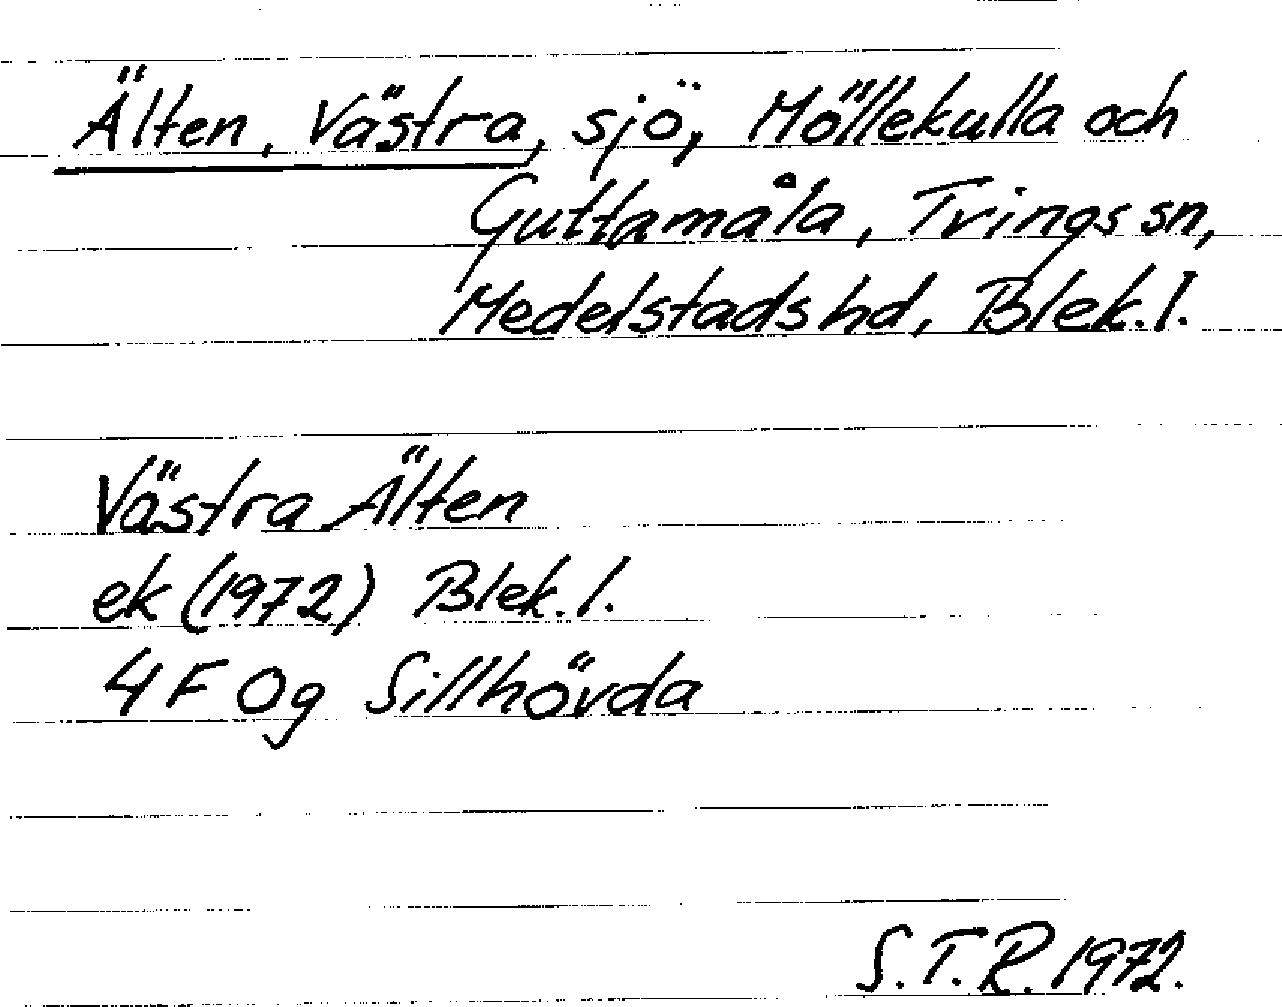 Älten, Västra, sjö, Möllekulla och
Guttamåla, Tvings sn,
Medelstads hd, Blek. l.
Västra Älten
ek (1972) Blek. l.
4F 0g Sillhövda
S.T.R. 1972.